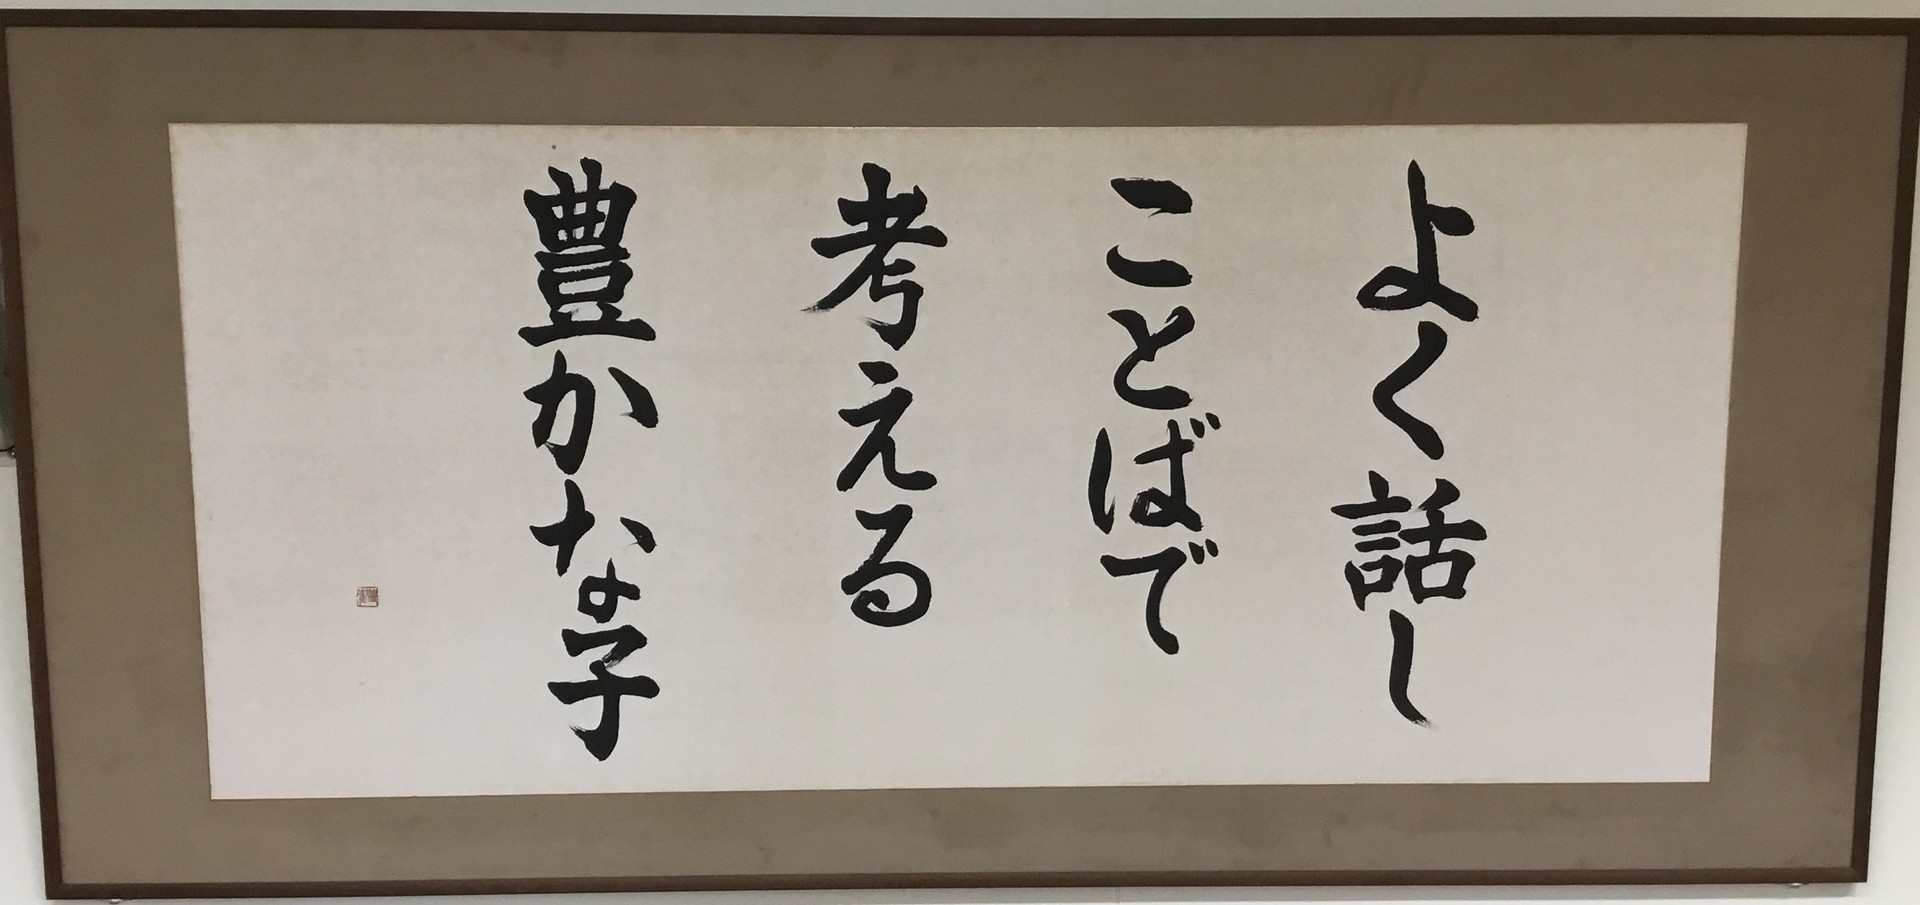 よく話し
ことばで
考える
豊かな子